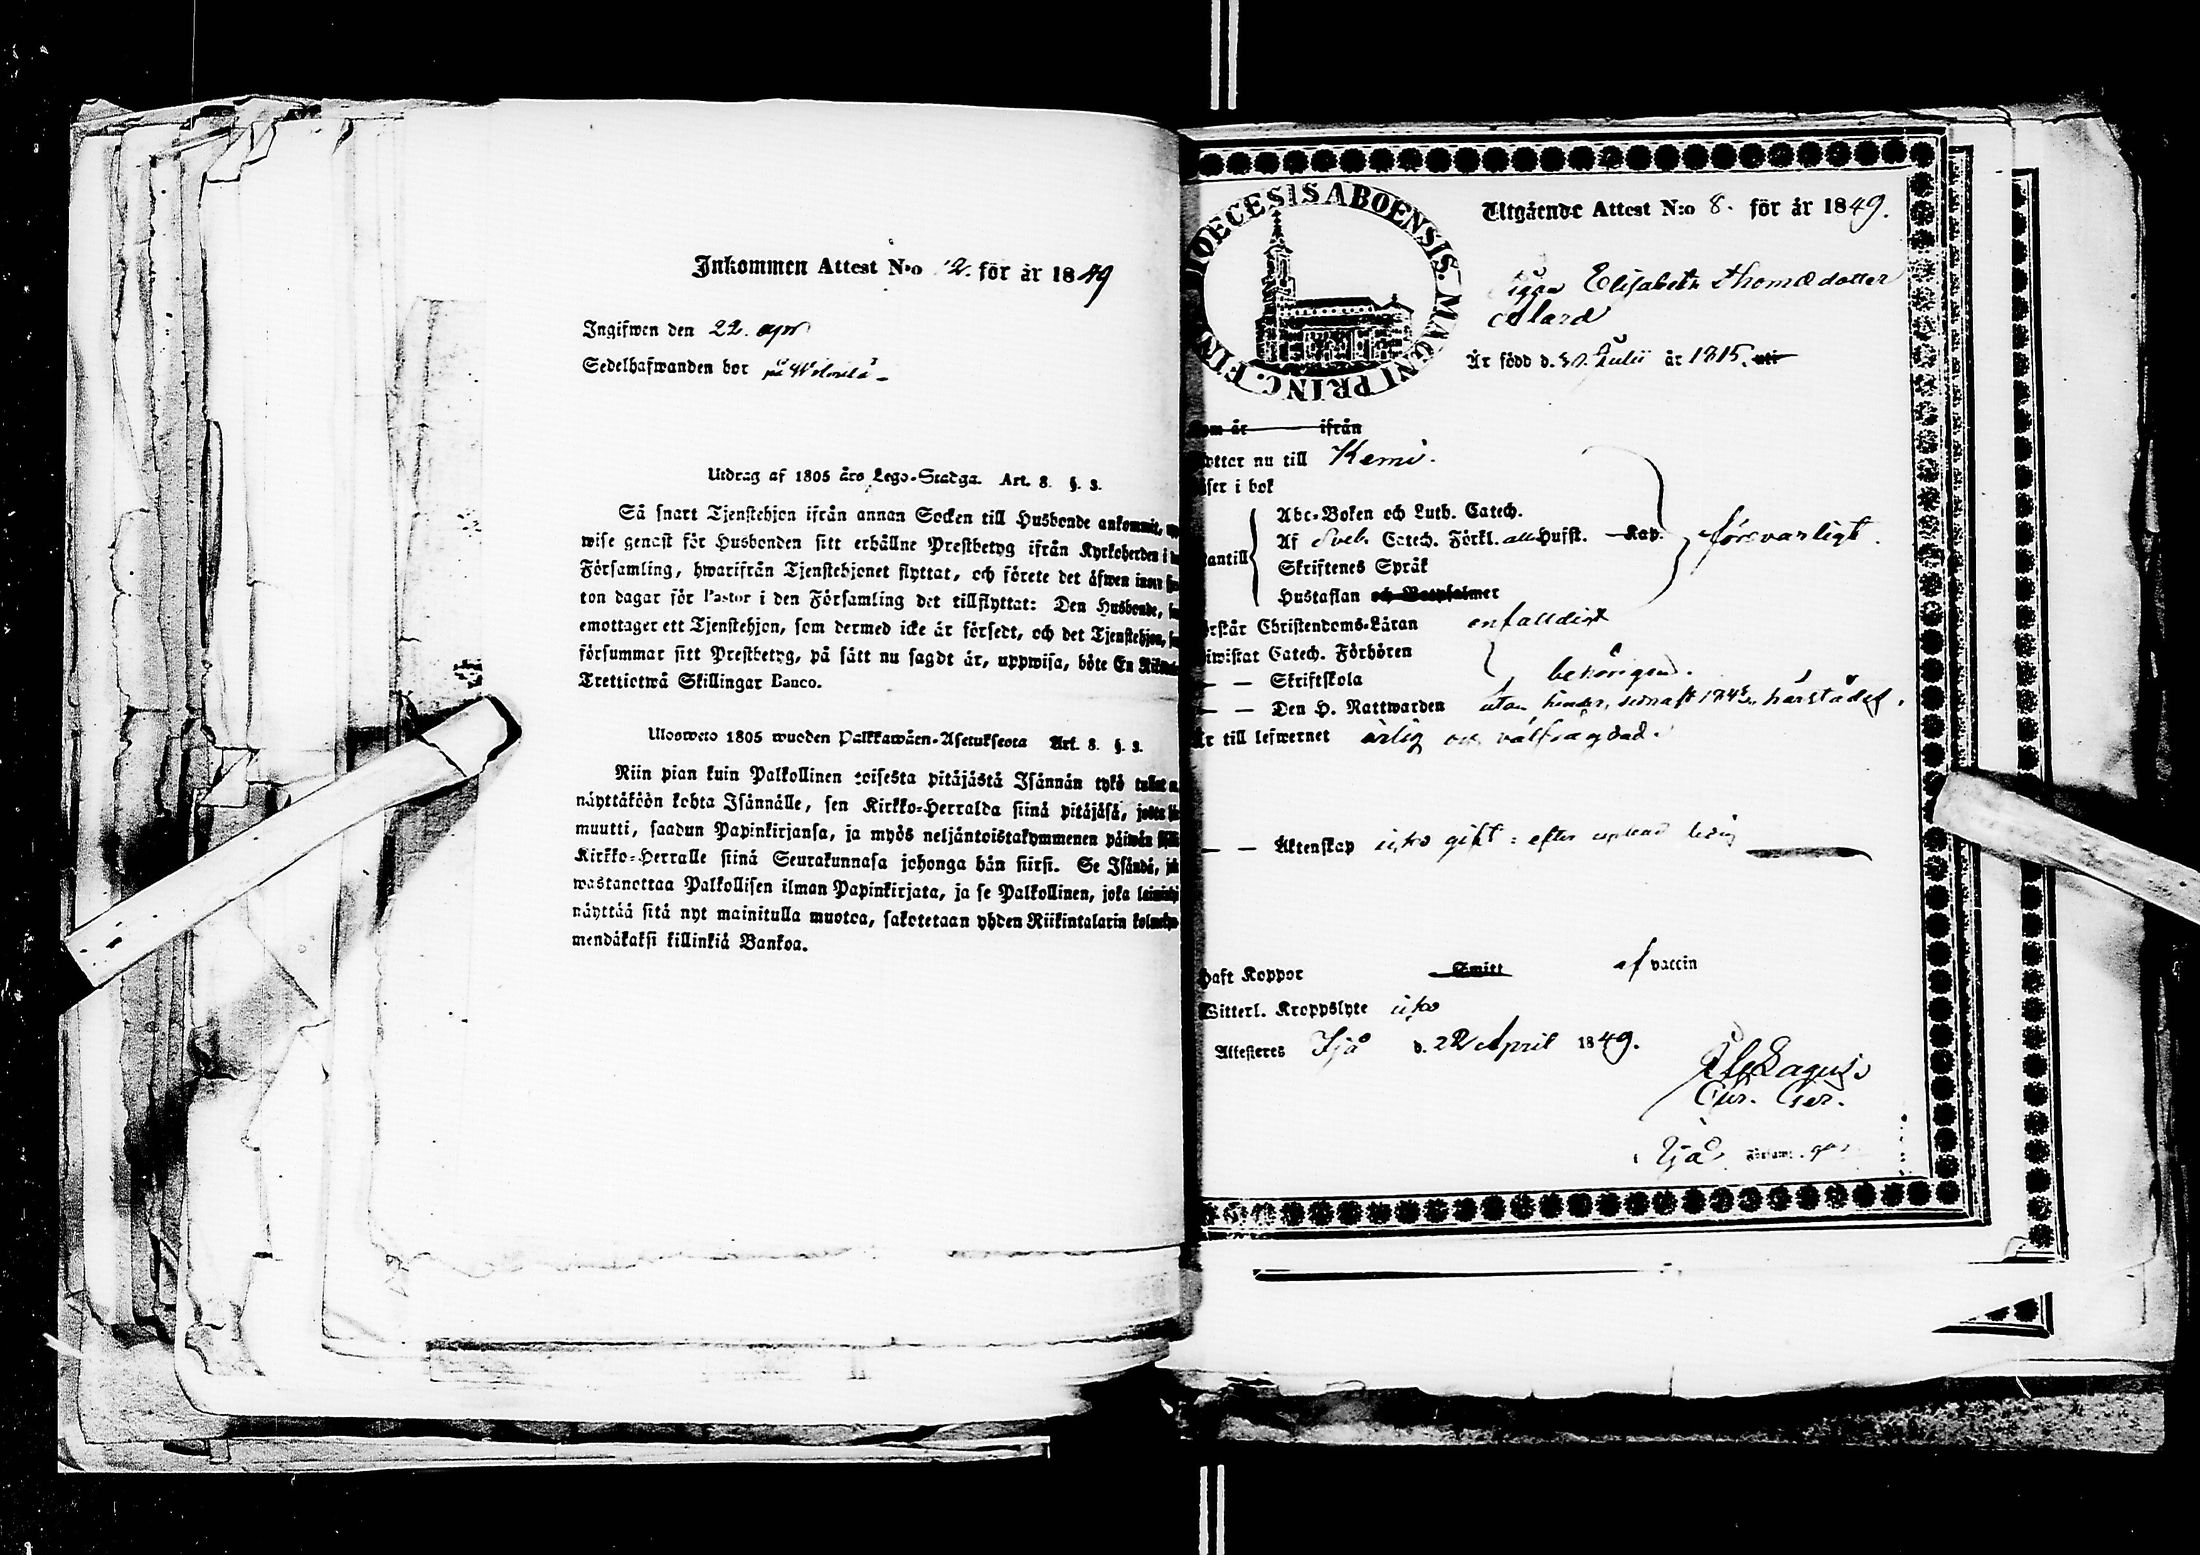 Inkommen Attest N:o 12. för år 1849
Ingifwen den 22. apr
Sedelhafwanden bor på
Utdrag af 1805 års Lego-Stadga. Art. 8. §. 3.
Så snart Tjenstehjon ifrån annan Socken till Husbonde ankommit,
wise genast för Husbonden sitt erhållne Prestbetyg ifrån Kyrkoherden i
Församling, hwarifrån Tjenstehjonet flyttat, och förete det äfwen inom
ton dagar för Pastor i den Församling det tillflyttat: Den Husbonde,
emottager ett Tjenstehjon, som dermed icke är försedt, och det Tjenstehjon,
försummar sitt Prestbetyg, på sätt nu sagdt är, uppwisa, böte En Riksdal
Trettiotwå Skillingar Banco.
Ulosweto 1805 wuoden Palkkawäen-Asetuksesta Art. 8. §. 3.
Niin pian kuin Palkollinen toisesta pitäjästä Isännän tykö tullut
näyttäköön kohta Isännälle, sen Kirkko-Herralda siinä pitäjäsä, josta
muutti, saadun Papinkirjansa, ja myös neljäntoistakymmenen päiwän
Kirkko-Herralle siinä Seurakunnasa johonga hän siirsi. Se Isändä,
wastanottaa Palkollisen ilman Papinkirjata, ja se Palkollinen, joka laimin
näyttää sitä nyt mainitulla muotoa, sakotetaan yhden Riikintalarin kolmeky
mendäkaksi killinkiä Bankoa.
DIOECESIS ABOENSIS. MAGNI PRINC. FIN
Utgående Attest N:o 8. för år 1849.
Pigan Elisabeth Thomædotter
Alard
Är född d. 30. Julii år 1815. uti
som är ifrån
flyttar nu till Kemi.
läser i bok
Abc-Boken och Luth. Catech.
Af Sveb. Catech. Förkl. all Husst. Kap. försvarligt.
utantill Skriftenes Språk
Hustaflan och Botpsalmer
Förstår Christendoms-Läran enfalldigt
Biwistat Catech. Förhören
— — Skriftskola behörigen.
— — Den H. Nattwarden utan hinder, sednast 1848, härstädes.
Är till lefwernet ärlig och välfrägdad.
— — Äktenskap icke gift: efter
Haft Koppor Smitt af vaccin
Witterl. Kroppslyte icke
Attesteres Ijå d. 22 April 1849.
Lagus
Ijå